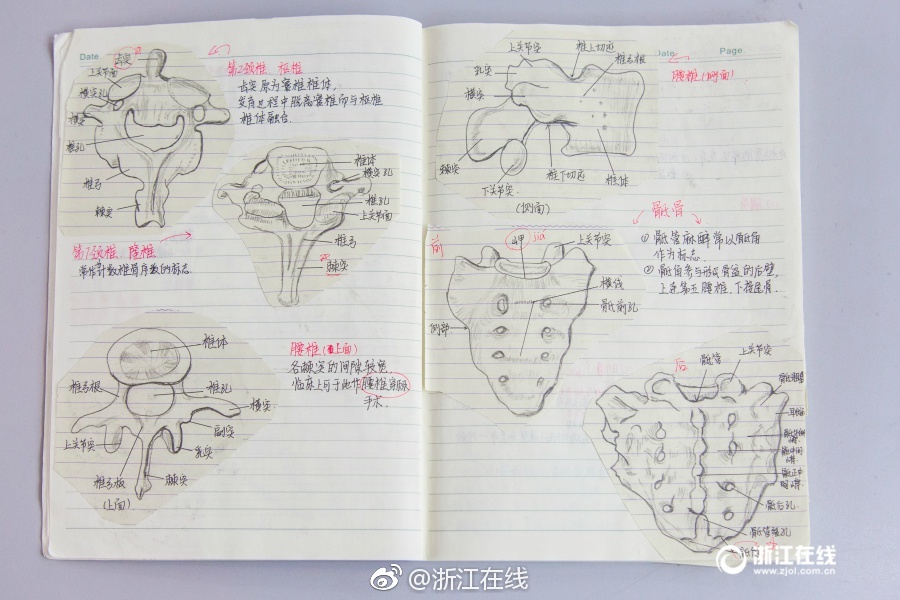 Date
齿突
上关节面
横突孔
横突
椎孔
椎弓
棘突
第2颈椎、枢椎
齿突原为寰椎椎体,
发育过程中脱离寰椎而与枢椎
椎体融合.
椎体
横突孔
椎孔
上关节面
椎弓
棘突
第7颈椎、隆椎
常作计数椎骨序数的标志.
椎体
椎弓根
椎孔
横突
上关节突
副突
乳突
椎弓板
棘突
(上面)
腰椎(上面)
各棘突的间隙较宽
临床上可于此作腰椎穿刺术
手术.
Date.
Page.
上关节突
椎上切迹
椎弓根
乳突
横突
棘突
下关节突
椎下切迹
椎体
(侧面)
腰椎(侧面)
骶骨
① 骶管麻醉常以骶角
作为标志.
② 骶骨参与形成骨盆的后壁,
上连第五腰椎、下接尾骨.
前
岬
jiǎ
上关节突
横线
骶前孔
侧部
后
骶管
上关节突
骶粗隆
骶后孔
骶管裂孔
浙江在线
www.zjol.com.cn
@浙江在线